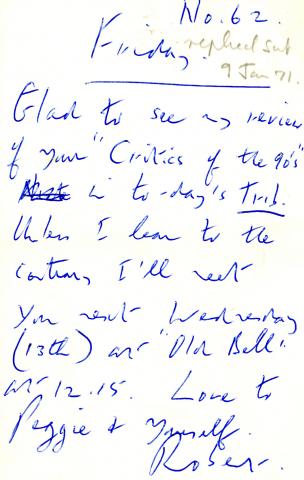 No. 62.
Friday. replied Sat
9 Jan 71.
Glad to see my review
of your "Critics of the 90's"
in to-day's Trib.
Unless I hear to the
contrary I'll meet
you next Wednesday
(13th) at "Old Bell"
at 12.15. Love to
Peggie & yourself.
Robert.